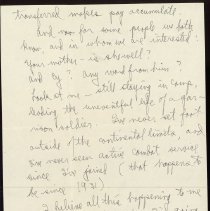 transferred makes pay accumulate.
and now for some people we both
know, and in whom we are interested:
Your mother - is she well?
and Cy? any word from him?
Look at me - still staying in camp,
leading the uneventful life of a gar-
rison soldier. I've never set foot
outside the continental limits, and
I've never seen active combat service
since I've joined (that happens to
be since 1931)
I believe all this happening to me